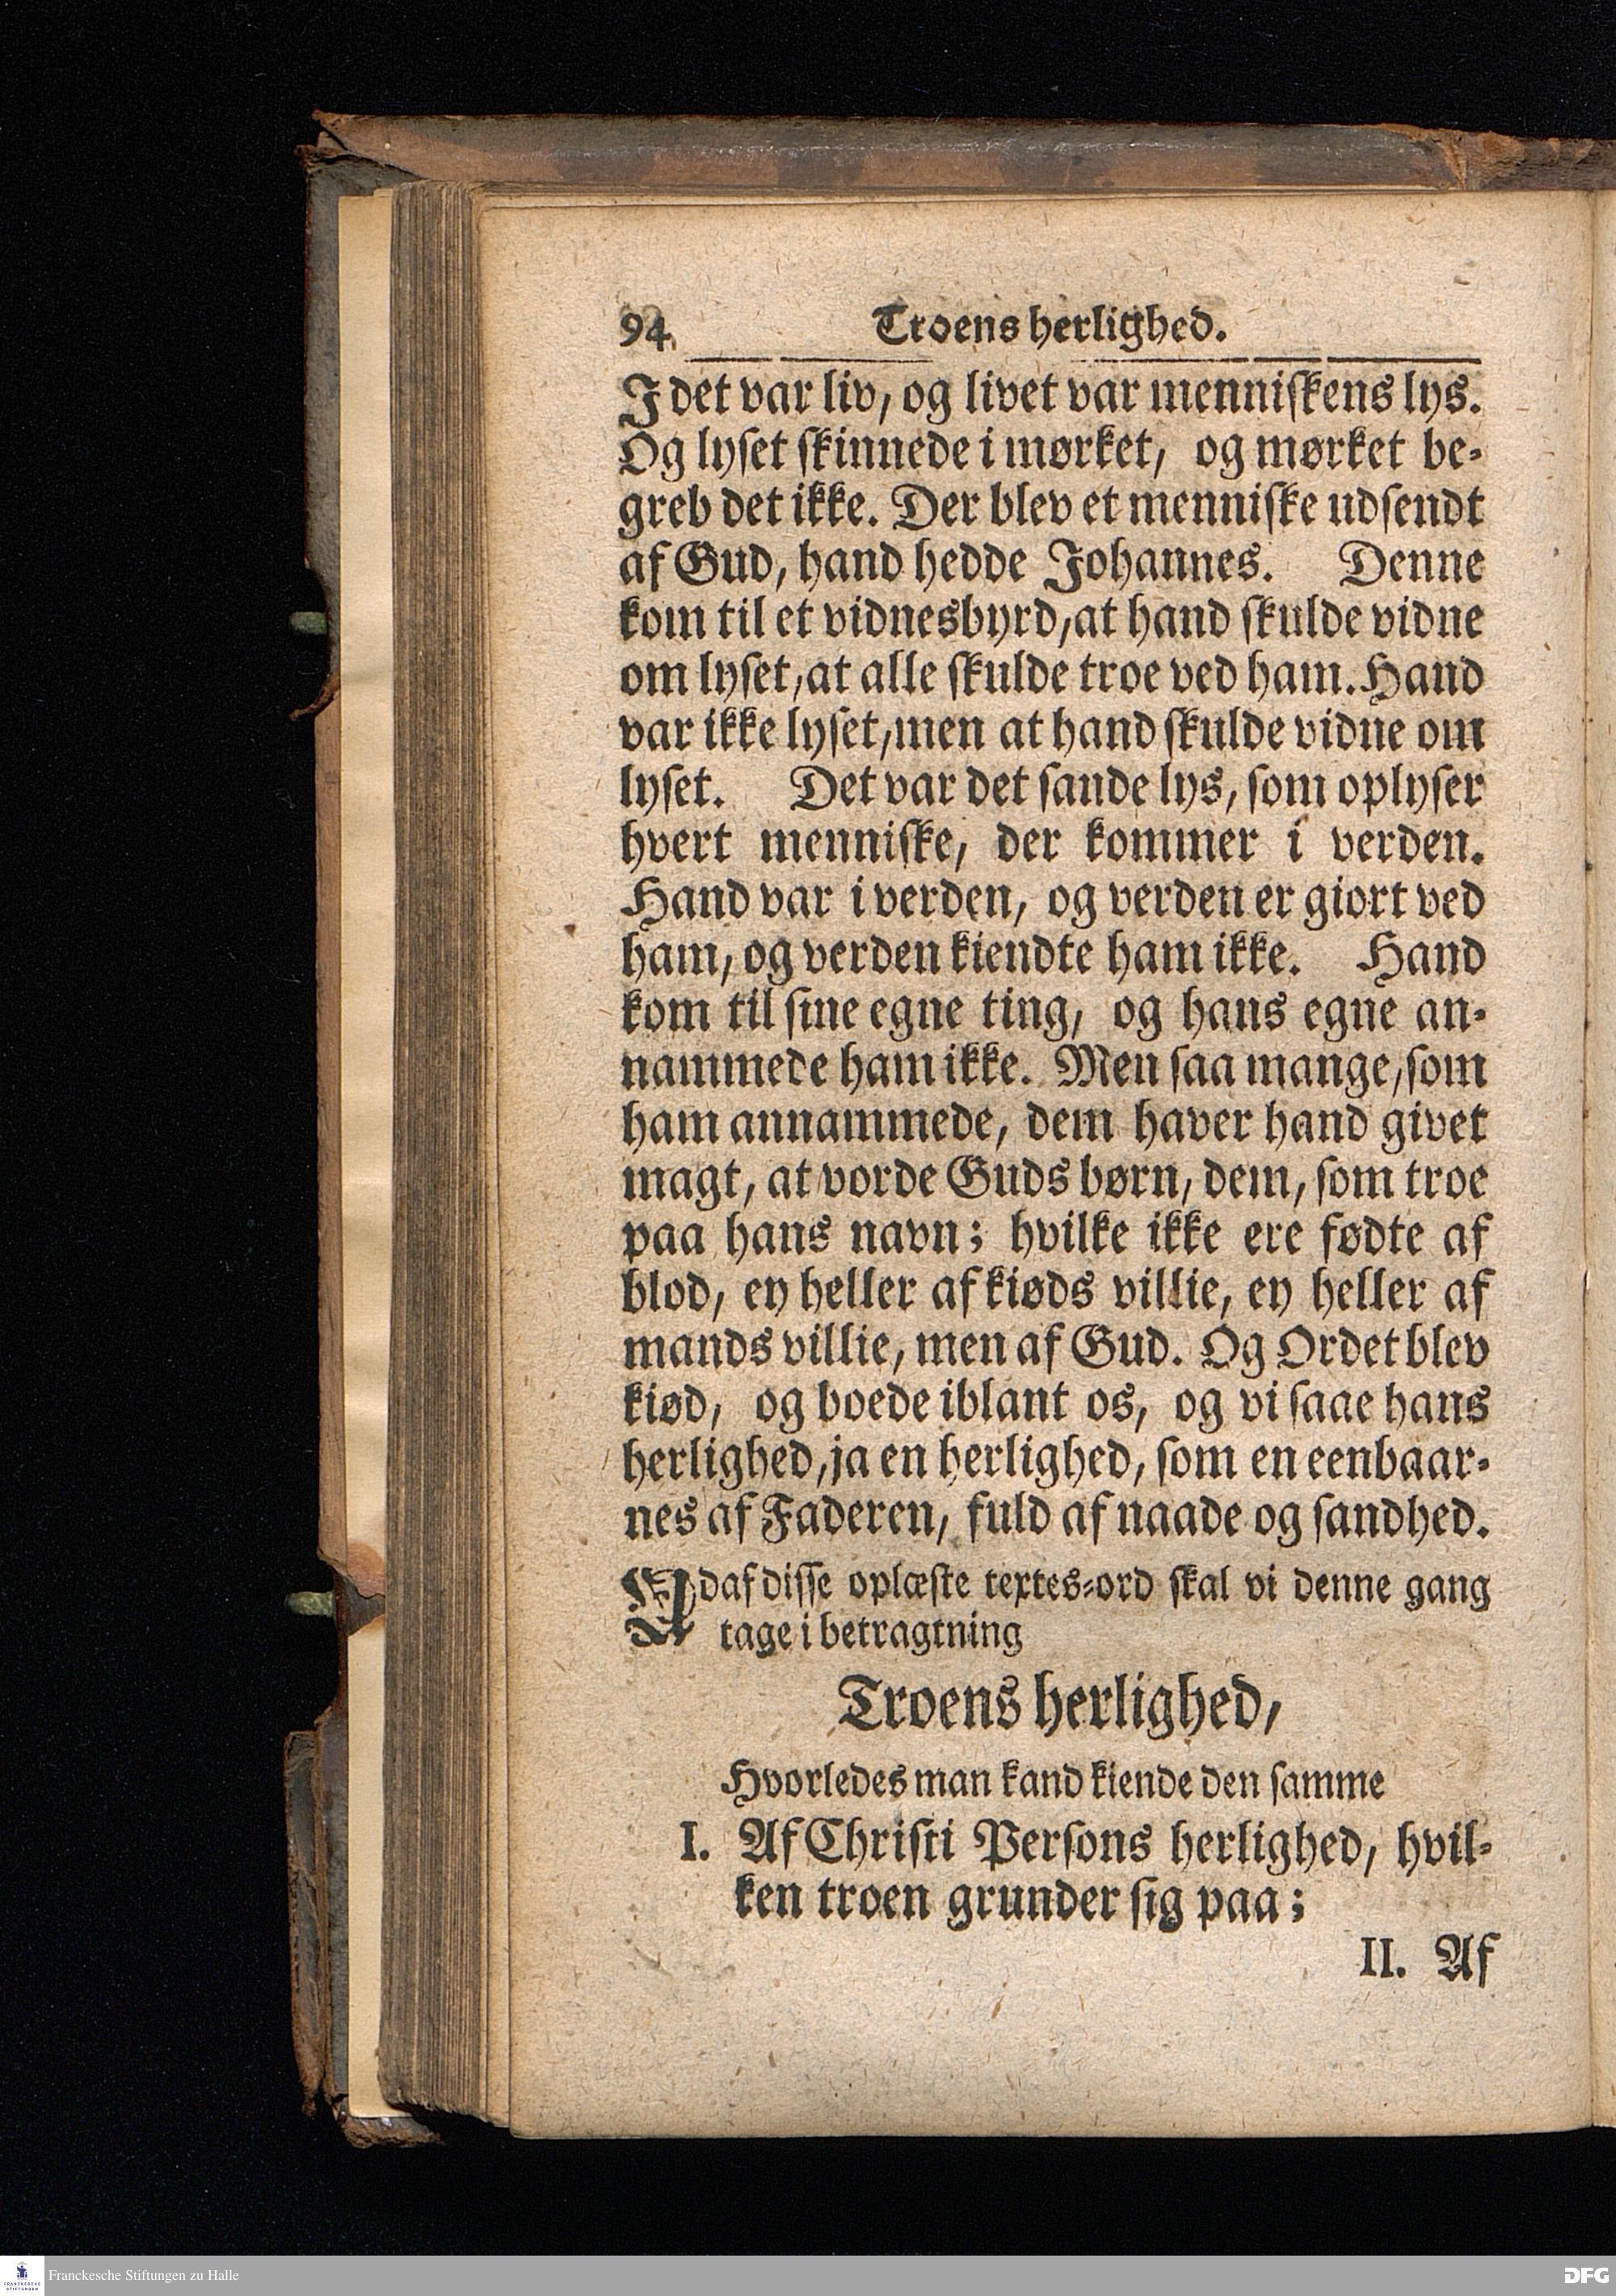 94 Troens herlighed.
I det var liv, og livet var menniſkens lys.
Og lyſet ſkinnede i mørket, og mørket be-
greb det ikke. Der blev et menniſke udſendt
af Gud, hand hedde Johannes. Denne
kom til et vidnesbyrd, at hand ſkulde vidne
om lyſet, at alle ſkulde troe ved ham. Hand
var ikke lyſet, men at hand ſkulde vidne om
lyſet. Det var det ſande lys, ſom oplyſer
hvert menniſke, der kommer i verden.
Hand var i verden, og verden er giort ved
ham, og verden kiendte ham ikke. Hand
kom til ſine egne ting, og hans egne an-
nammede ham ikke. Men ſaa mange, ſom
ham annammede, dem haver hand givet
magt, at vorde Guds børn, dem, ſom troe
paa hans navn; hvilke ikke ere fødte af
blod, ey heller af kiøds villie, ey heller af
mands villie, men af Gud. Og Ordet blev
kiød, og boede iblant os, og vi ſaae hans
herlighed, ja en herlighed, ſom en eenbaar-
nes af Faderen, fuld af naade og ſandhed.
Ud af diſſe oplæſte textes-ord ſkal vi denne gang
tage i betragtning
Troens herlighed,
Hvorledes man kand kiende den ſamme
I. Af Chriſti Perſons herlighed, hvil-
ken troen grunder ſig paa;
II. Af
Franckesche Stiftungen zu Halle
FRANCKESCHE
STIFTUNGEN
DFG